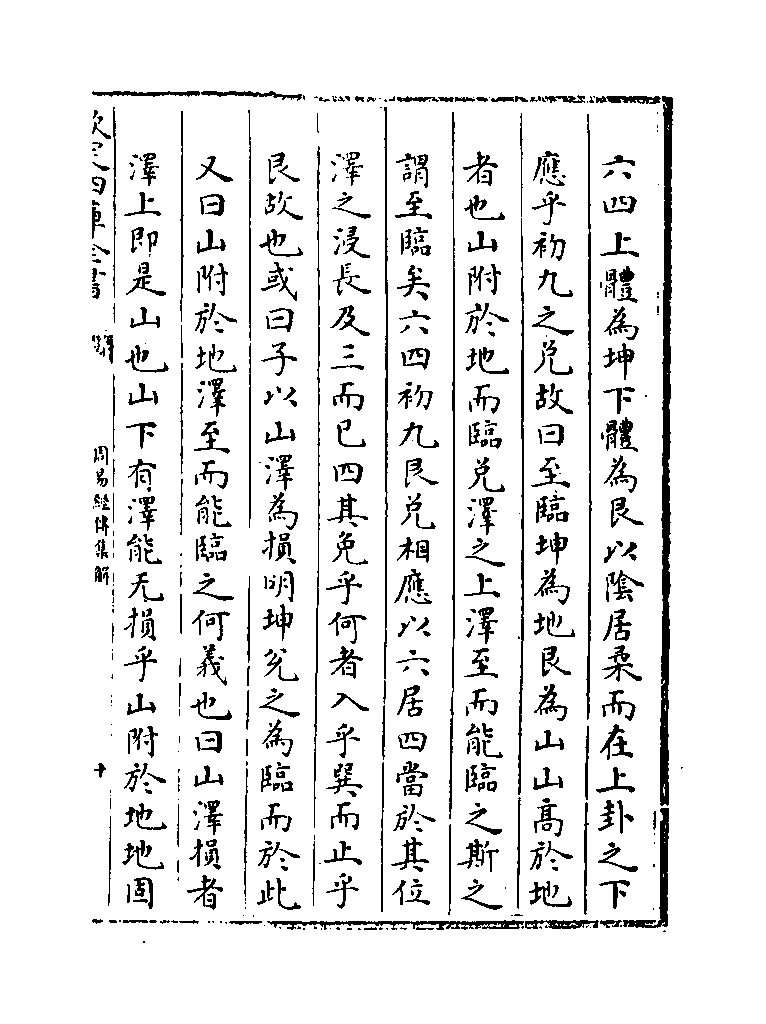 六四上體為坤下體為艮以陰居柔而在上卦之下
應乎初九之兌故曰至臨坤為地艮為山山高於地
者也山附於地而臨兌澤之上澤至而能臨之斯之
謂至臨矣六四初九艮兌相應以六居四當於其位
澤之浸長及三而已四其免乎何者入乎巽而止乎
艮故也或曰子以山澤為損明坤兌之為臨而於此
又曰山附於地澤至而能臨之何義也曰山澤損者
澤上即是山也山下有澤能无損乎山附於地地固
欽定四庫全書
周易經傳集解
十